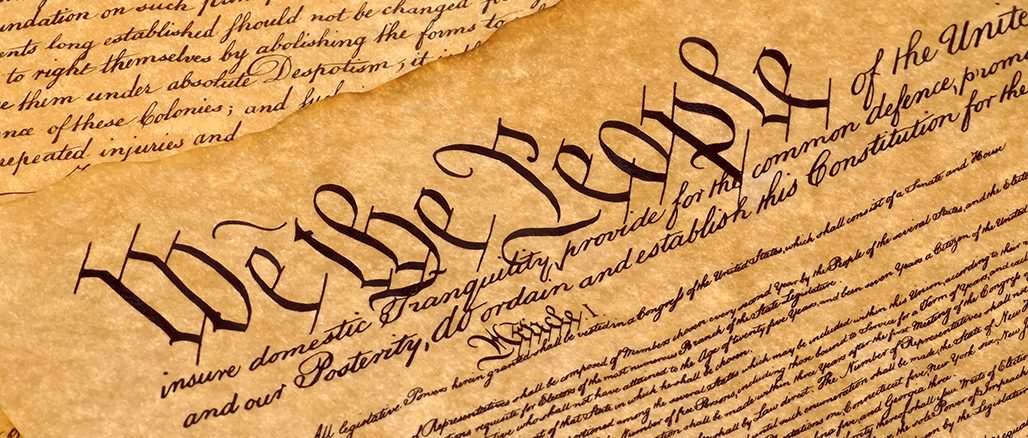 undation on such
ents long established should not be changed for
to right themselves by abolishing the forms to
e them under absolute Despotism, it
ance of these Colonies; and
repeated injuries and
We the People of the Unite
insure domestic Tranquility, provide for the common defence, promo
and our Posterity, do ordain and establish this Constitution for the
Article. I.
All legislative Powers herein granted shall be vested in a Congress of the United States, which shall consist of a Senate and House
of Representatives shall be composed of Members chosen every second Year by the People of the several States, and the Elec
requisite for Electors of the most numerous Branch of the State Legislature.
who shall not have attained to the Age of twenty five Years, and been seven Years a Citizen of the United
of that State in which he shall be chosen.
among the several States which may be included within this Union, according to their
Number of free Persons, including those bound to Service for a Term of Years, and
shall be made within three Years after the first Meeting of the Congress
by Law direct. The Number of Representatives shall not
such enumeration shall be made, the State of New
Connecticut five, New York six, New
five, and Georgia three.